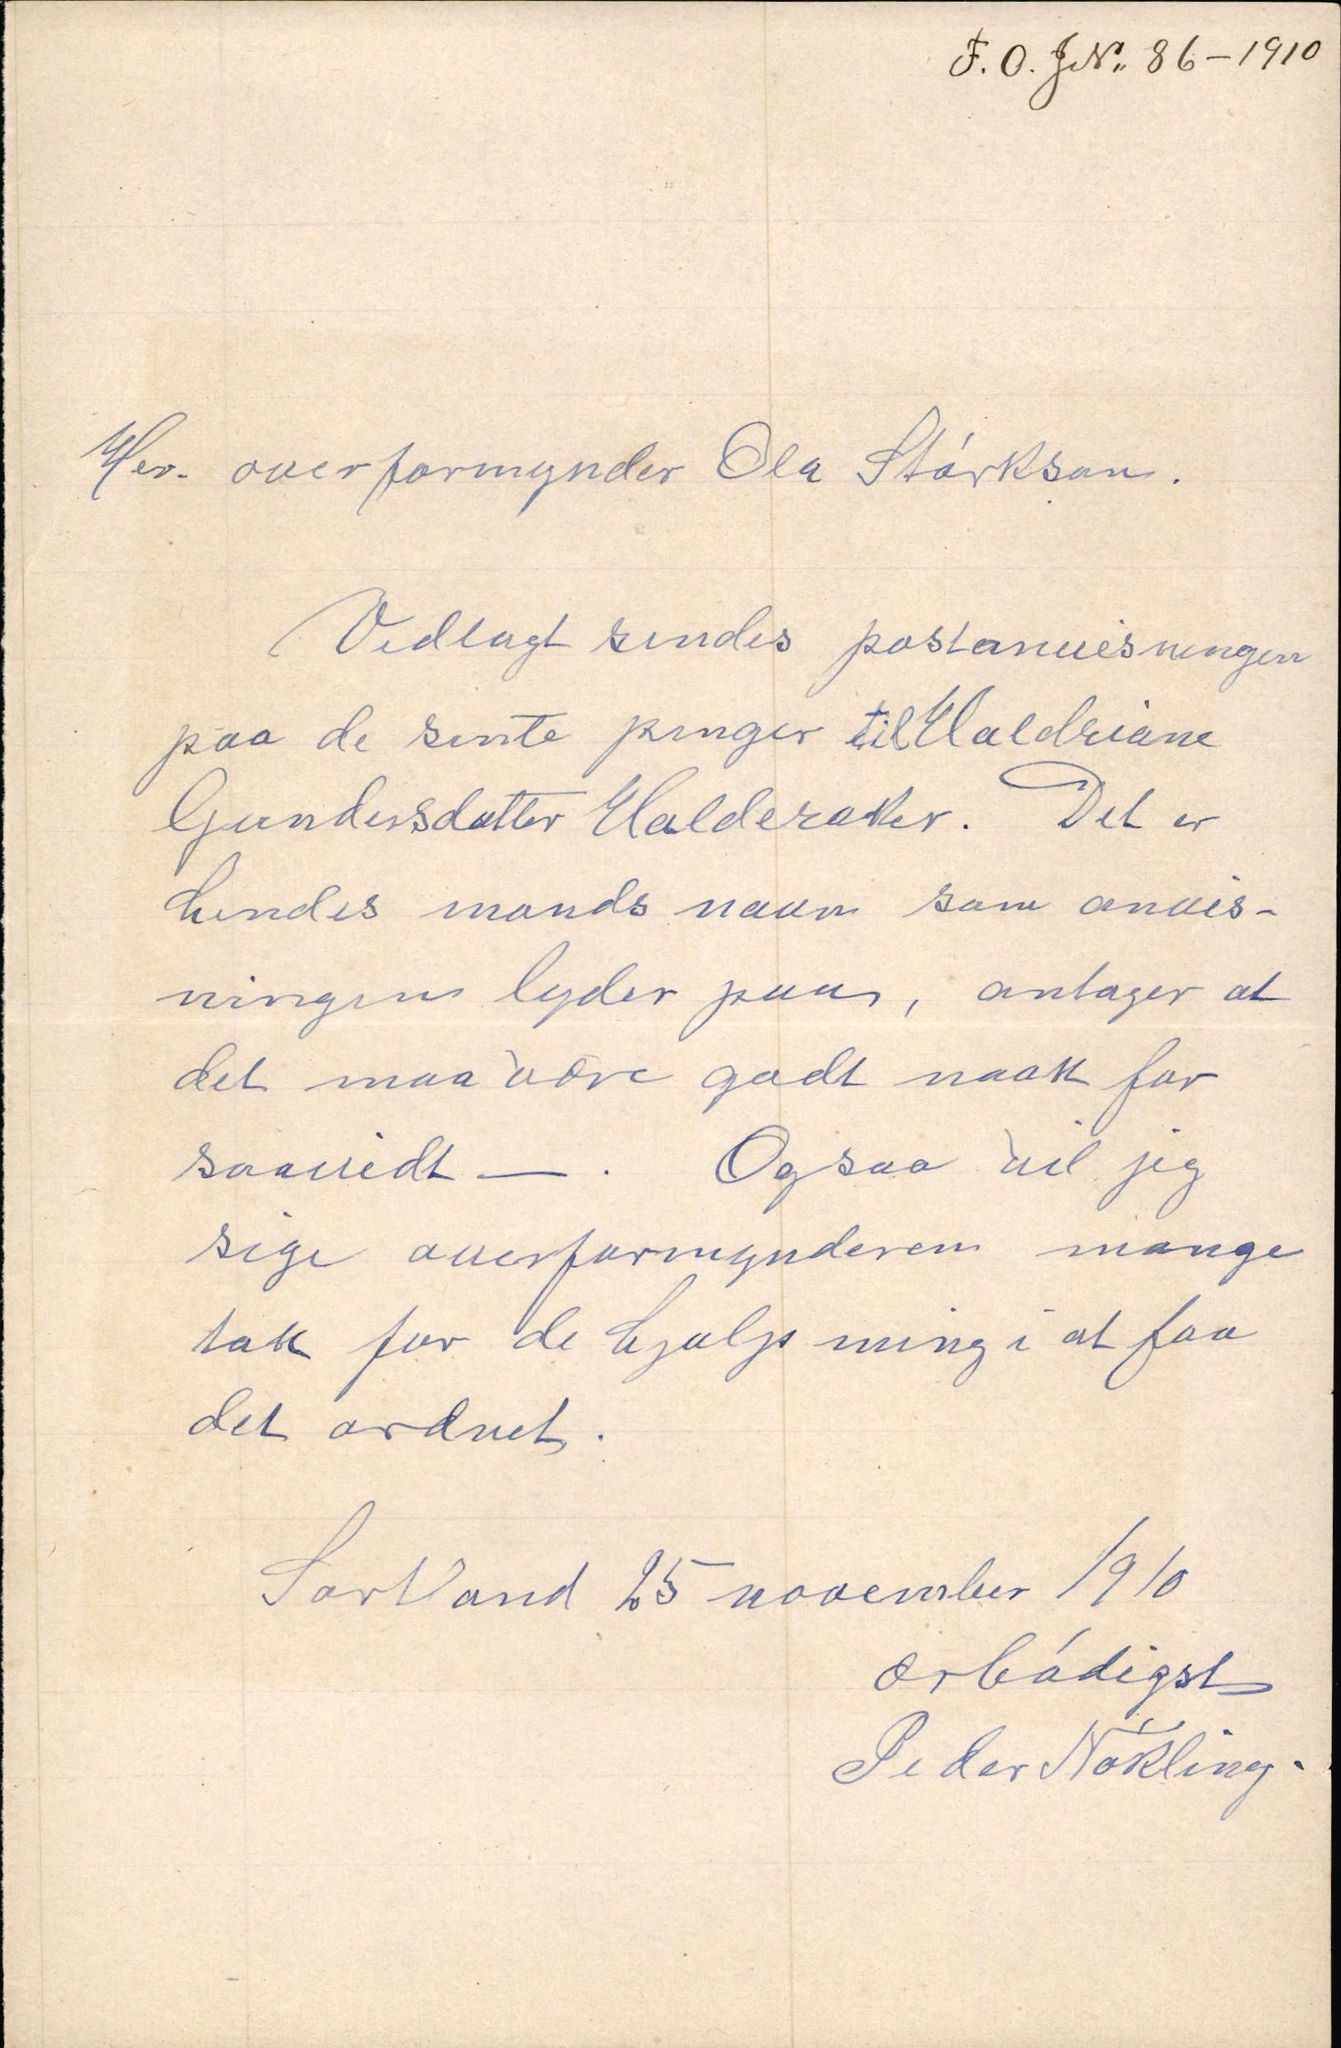 F. O. J№. 86-1910
Her. overformynder Ola Störkson.
Vedlagt sendes postanvisningen
paa de sente penger til Haldriane
Gundersdatter Halderaker. Det er
hendes mands navn som anvis-
ningen lyder paa, antager at
det maa være godt nokk for
saavidt —. Ogsaa vil jeg
sige overformynderen mange
takk for de hjalp ming i at faa
det ordnet.
Sortland 25 november 1910
ærbödigst
Peder Nökling.